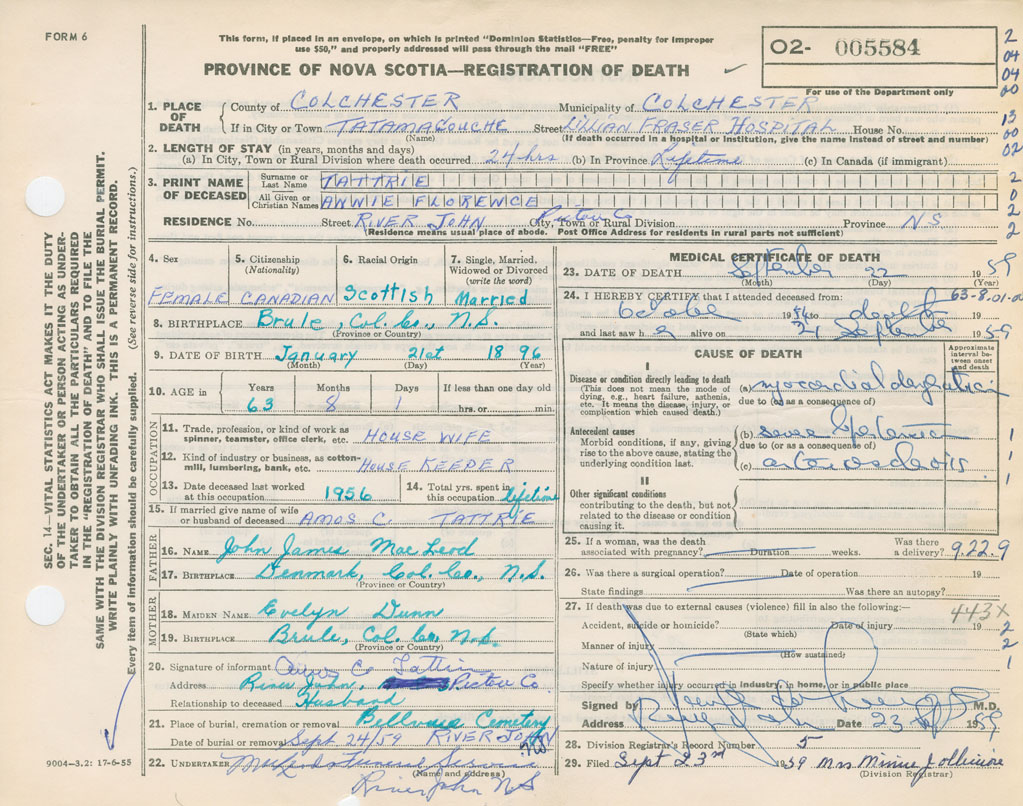 FORM 6
This form, if placed in an envelope, on which is printed "Dominion Statistics—Free, penalty for improper
use $50," and properly addressed will pass through the mail "FREE"
PROVINCE OF NOVA SCOTIA—REGISTRATION OF DEATH
02- 005584
For use of the Department only
2
04
04
00
13
00
02
2
0
2
2
2
SEC. 14—VITAL STATISTICS ACT MAKES IT THE DUTY
OF THE UNDERTAKER OR PERSON ACTING AS UNDER-
TAKER TO OBTAIN ALL THE PARTICULARS REQUIRED
IN THE "REGISTRATION OF DEATH" AND TO FILE THE
SAME WITH THE DIVISION REGISTRAR WHO SHALL ISSUE THE BURIAL PERMIT.
WRITE PLAINLY WITH UNFADING INK. THIS IS A PERMANENT RECORD.
Every item of information should be carefully supplied. (See reverse side for instructions.)
1. PLACE OF DEATH
County of COLCHESTER Municipality of COLCHESTER
If in City or Town TATAMAGOUCHE Street LILLIAN FRASER HOSPITAL House No.
(Name) (If death occurred in a hospital or institution, give the name instead of street and number)
2. LENGTH OF STAY (in years, months and days)
(a) In City, Town or Rural Division where death occurred 24 hrs (b) In Province Lifetime (c) In Canada (if immigrant)
3. PRINT NAME OF DECEASED
Surname or Last Name TATTRIE
All Given or Christian Names ANNIE FLORENCE
RESIDENCE No. Street RIVER JOHN City, Town or Rural Division Pictou Co Province N.S
(Residence means usual place of abode. Post Office Address for residents in rural parts not sufficient)
4. Sex
FEMALE
5. Citizenship
(Nationality)
CANADIAN
6. Racial Origin
Scottish
7. Single, Married,
Widowed or Divorced
(write the word)
Married
8. BIRTHPLACE Brule, Col. Co., N.S.
(Province or Country)
9. DATE OF BIRTH January 21st 1896
(Month) (Day) (Year)
10. AGE in
Years Months Days If less than one day old
63 8 1 hrs. or min.
OCCUPATION
11. Trade, profession, or kind of work as
spinner, teamster, office clerk, etc. HOUSE WIFE
12. Kind of industry or business, as cotton-
mill, lumbering, bank, etc. HOUSE KEEPER
13. Date deceased last worked
at this occupation 1956
14. Total yrs. spent in
this occupation lifetime
15. If married give name of wife
or husband of deceased AMOS C. TATTRIE
FATHER
16. NAME John James MacLeod
17. BIRTHPLACE Denmark, Col. Co., N.S.
(Province or Country)
MOTHER
18. MAIDEN NAME Evelyn Dunn
19. BIRTHPLACE Brule, Col. Co., N.S.
(Province or Country)
20. Signature of informant Amos C Tattrie
Address River John, Pictou Co
Relationship to deceased Husband
21. Place of burial, cremation or removal Bellevue Cemetery
Date of burial or removal Sept 24/59 RIVER JOHN
22. UNDERTAKER Funeral Service
(Name and address)
River John N S
9004-3.2: 17-6-55
MEDICAL CERTIFICATE OF DEATH
23. DATE OF DEATH September 22 1959
(Month) (Day) (Year)
24. I HEREBY CERTIFY that I attended deceased from: 63-8.01-0
October 1956 to death
and last saw h e alive on 21 September 1959
CAUSE OF DEATH
Approximate
interval be-
tween onset
and death
I
Disease or condition directly leading to death
(This does not mean the mode of
dying, e.g., heart failure, asthenia,
etc. It means the disease, injury, or
complication which caused death.)
(a) myocardial degeneration
due to (or as a consequence of)
Antecedent causes
Morbid conditions, if any, giving
rise to the above cause, stating the
underlying condition last.
(b) severe hypertension
due to (or as a consequence of)
(c) arteriosclerosis
1
1
1
II
Other significant conditions
contributing to the death, but not
related to the disease or condition
causing it.
25. If a woman, was the death
associated with pregnancy? Duration weeks. Was there
a delivery? 9.22.9
26. Was there a surgical operation? Date of operation 19
State findings Was there an autopsy?
27. If death was due to external causes (violence) fill in also the following:— 443X
Accident, suicide or homicide? Date of injury 19 2
(State which)
Manner of injury 2
(How sustained)
Nature of injury 1
Specify whether injury occurred in industry, in home, or in public place
Signed by M.D.
Address River John Date 23 1959
28. Division Registrar's Record Number 5
29. Filed Sept 23rd 1959 Mrs Minnie Jollimore
(Division Registrar)